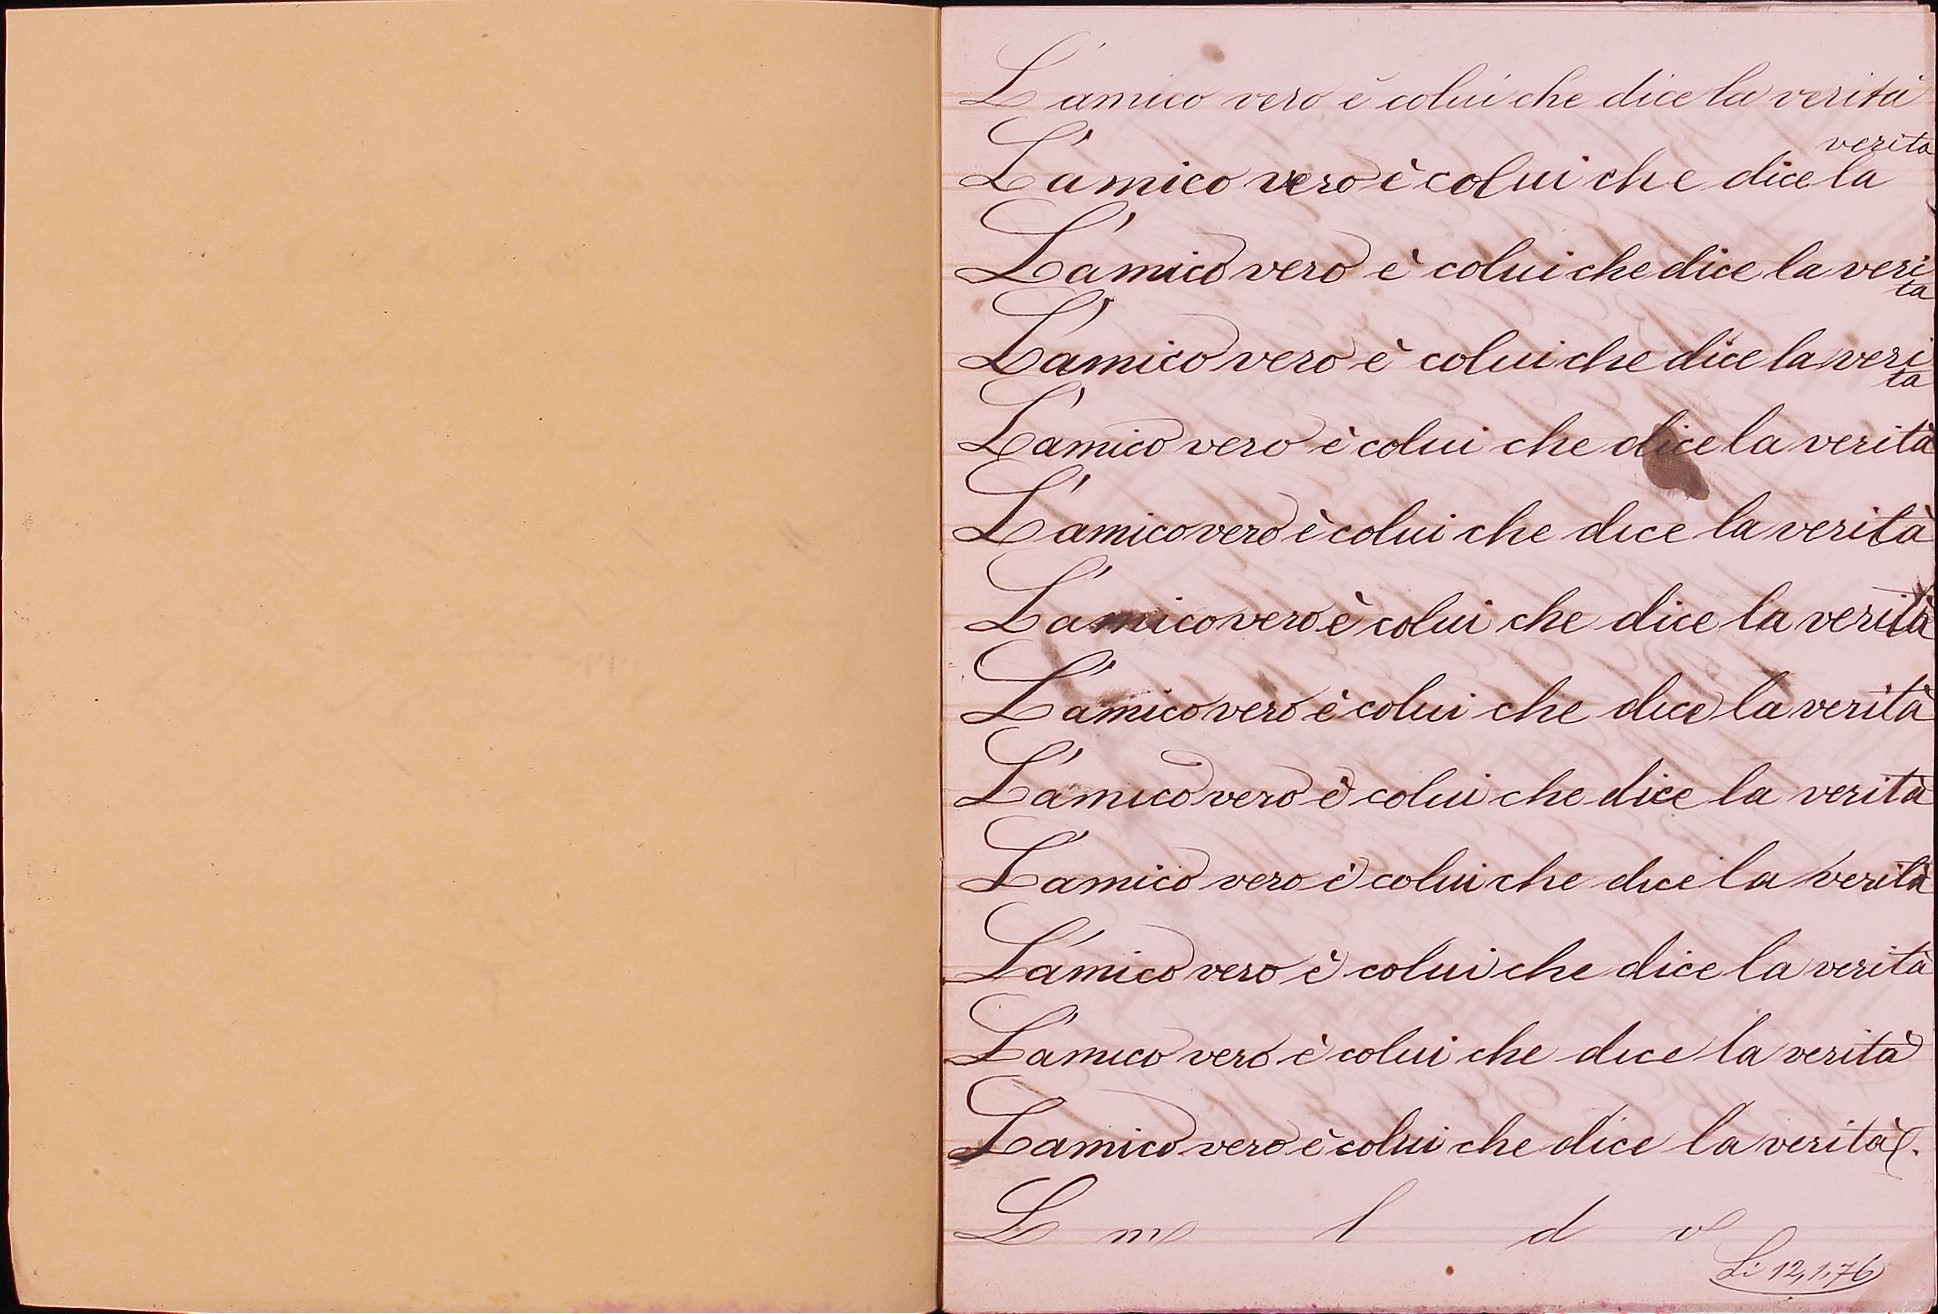 L'amico vero è colui che dice la verità
verità
L'amico vero è colui che dice la
L'amico vero è colui che dice la veri
tà
L'amico vero è colui che dice la veri
tà
L'amico vero è colui che dice la verità
L'amico vero è colui che dice la verità
L'amico vero è colui che dice la verità
L'amico vero è colui che dice la verità
L'amico vero è colui che dice la verità
L'amico vero è colui che dice la verità
L'amico vero è colui che dice la verità
L'amico vero è colui che dice la verità
L'amico vero è colui che dice la verità.
L m l d v
Li 12,1,76